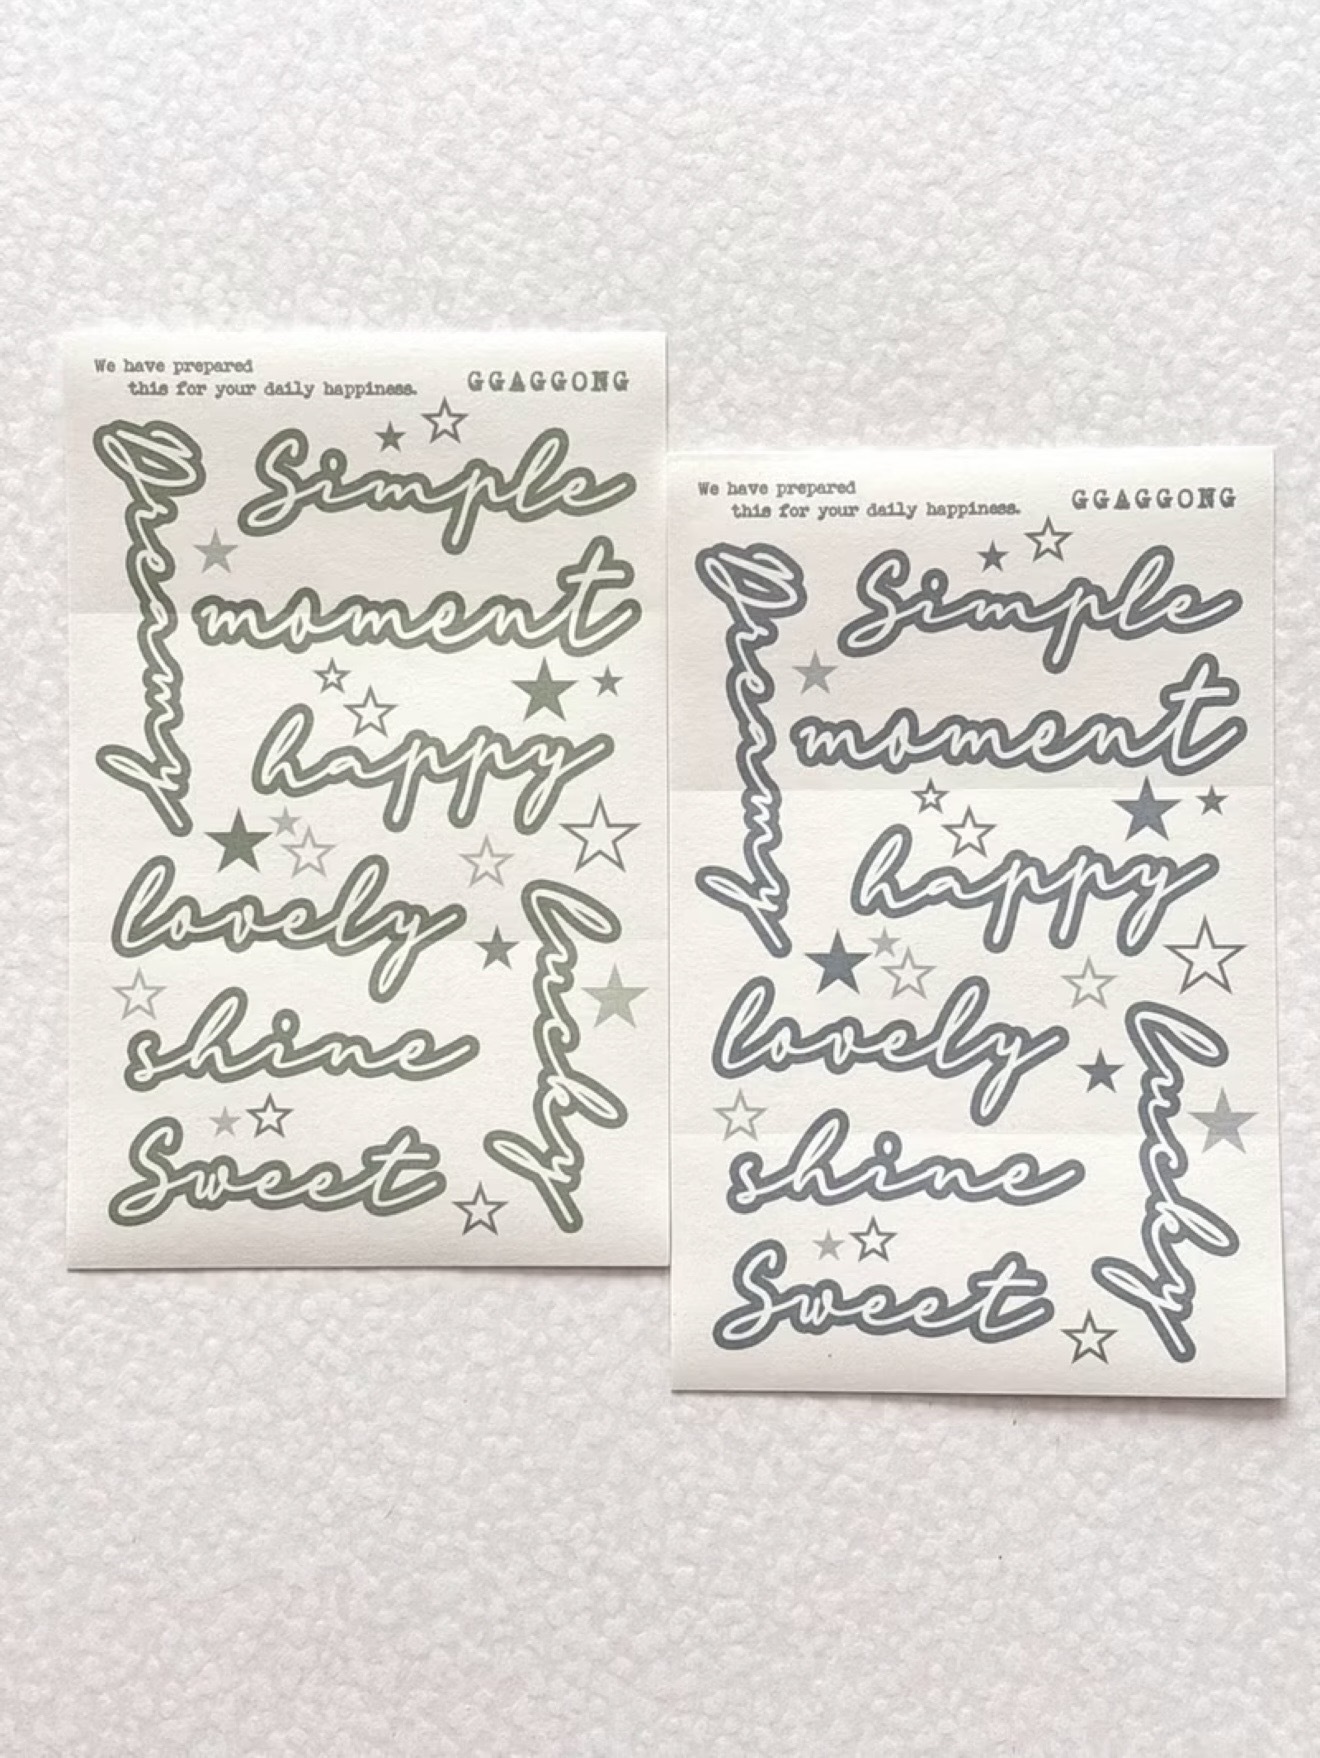 We have prepared
this for your daily happiness.
GGAGGONG
Dreamy
Simple
moment
happy
lovely
lucky
shine
Sweet
We have prepared
this for your daily happiness.
GGAGGONG
Dreamy
Simple
moment
happy
lovely
lucky
shine
Sweet